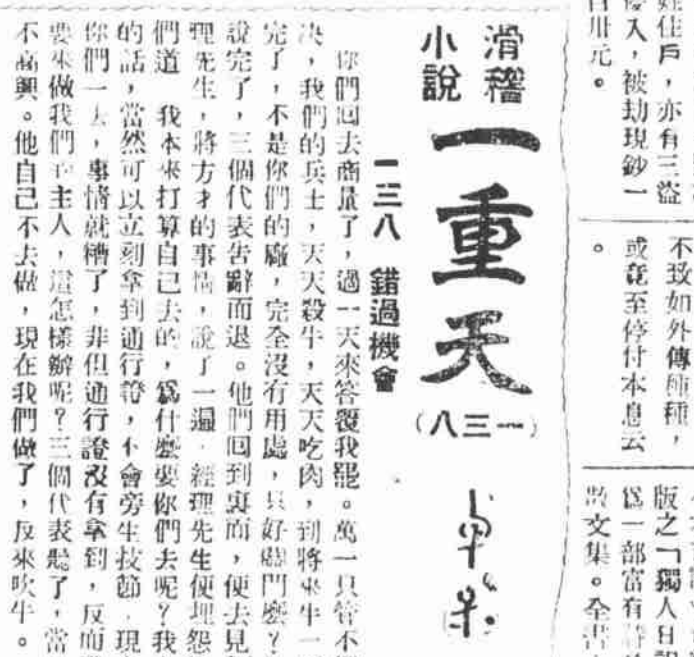 姓住戶，亦有三盜
入，被劫現鈔一
百卅元。
不致如外傳種種，
或竟至停付本息云
。
版之「獨人日記
爲一部富有詩
散文集。全書
滑稽
小說
一重天
（一三八）
一三八　錯過機會
你們回去商量了，過一天來答覆我罷。萬一只管不
决，我們的兵士，天天殺牛，天天吃肉，到將來牛一
完了，不是你們的廠，完全沒有用處，只好關門麼？
說完了，三個代表告辭而退。他們回到裏面，便去見
理先生，將方才的事情，說了一遍．經理先生便埋怨
們道　我本來打算自己去的，爲什麼要你們去呢？我
的話，當然可以立刻拿到通行證，不會旁生技節．現
你們一去，事情就糟了，非但通行證沒有拿到，反而
要來做我們的主人，這怎樣辦呢？三個代表聽了，當
不高興。他自己不去做，現在我們做了，反來吹牛。